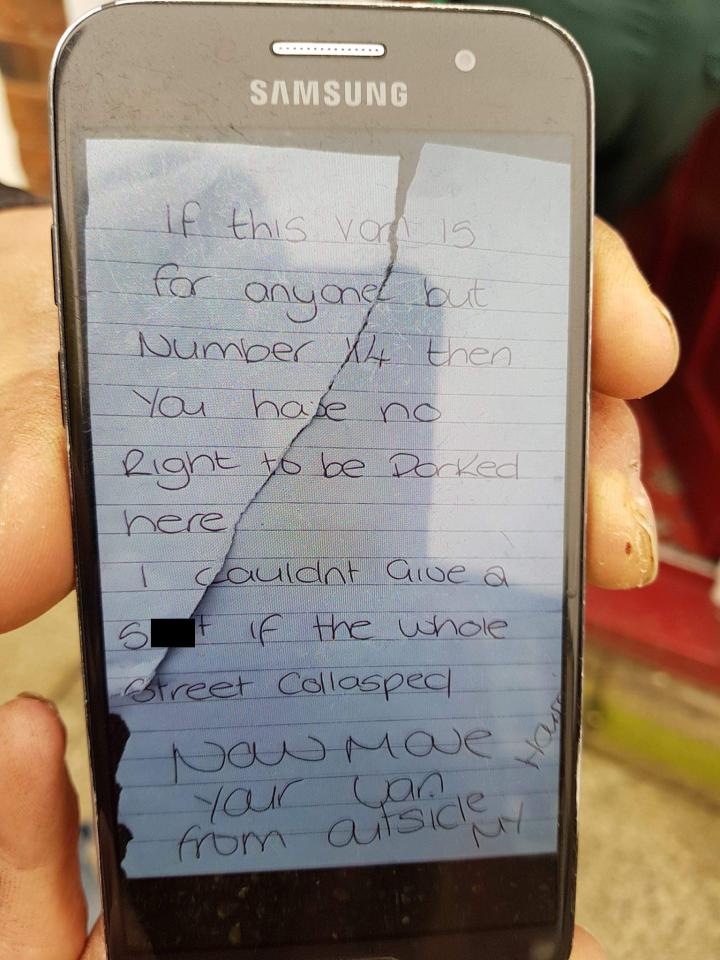 SAMSUNG
If this van is
for anyone but
Number 14 then
You have no
Right to be Parked
here
I couldnt Give a
S t if the whole
Street Collasped
Now Move
Your Van
from outside
My
House